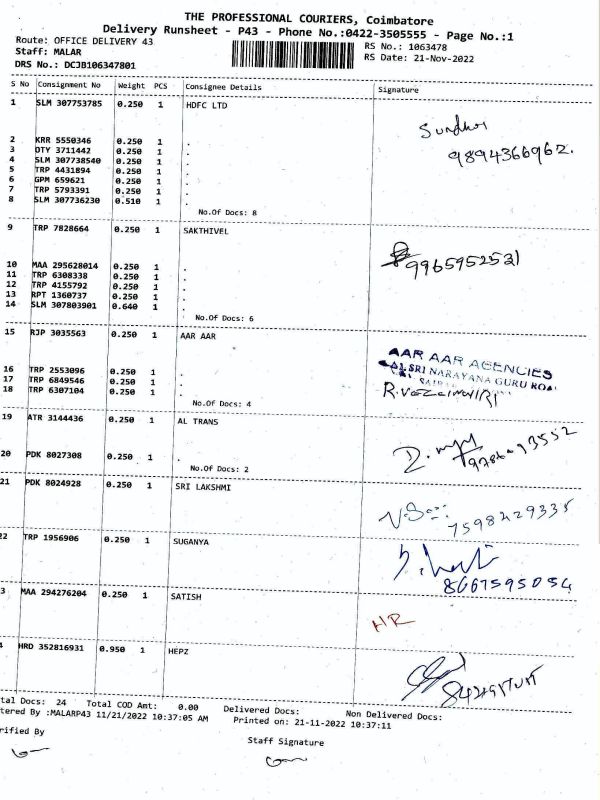 THE PROFESSIONAL COURIERS, Coimbatore
Delivery Runsheet - P43 - Phone No.:0422-3505555 - Page No.:1
Route: OFFICE DELIVERY 43 RS No.: 1063478
Staff: MALAR RS Date: 21-Nov-2022
DRS No.: DCJB106347801
S No Consignment No Weight PCS Consignee Details Signature
1 SLM 307753785 0.250 1 HDFC LTD
9894366962.
2 KRR 5550346 0.250 1 .
3 DTY 3711442 0.250 1 .
4 SLM 307738540 0.250 1 .
5 TRP 4431894 0.250 1 .
6 GPM 659621 0.250 1 .
7 TRP 5793391 0.250 1 .
8 SLM 307736230 0.510 1 .
No.Of Docs: 8
9 TRP 7828664 0.250 1 SAKTHIVEL
9965952531
10 MAA 295628014 0.250 1 .
11 TRP 6308338 0.250 1 .
12 TRP 4155792 0.250 1 .
13 RPT 1360737 0.250 1 .
14 SLM 307803901 0.640 1 .
No.Of Docs: 6
15 RJP 3035563 0.250 1 AAR AAR
AAR AAR AGENCIES
SRI NARAYANA GURU ROAD
16 TRP 2553096 0.250 1 .
17 TRP 6849546 0.250 1 .
18 TRP 6307104 0.250 1 .
No.Of Docs: 4
19 ATR 3144436 0.250 1 AL TRANS
20 PDK 8027308 0.250 1 .
No.Of Docs: 2
21 PDK 8024928 0.250 1 SRI LAKSHMI
7598429335
22 TRP 1956906 0.250 1 SUGANYA
8667595054
3 MAA 294276204 0.250 1 SATISH
HR
HRD 352816931 0.950 1 HEPZ
tal Docs: 24 Total COD Amt: 0.00 Delivered Docs: Non Delivered Docs:
tered By :MALARP43 11/21/2022 10:37:05 AM Printed on: 21-11-2022 10:37:11
rified By
Staff Signature